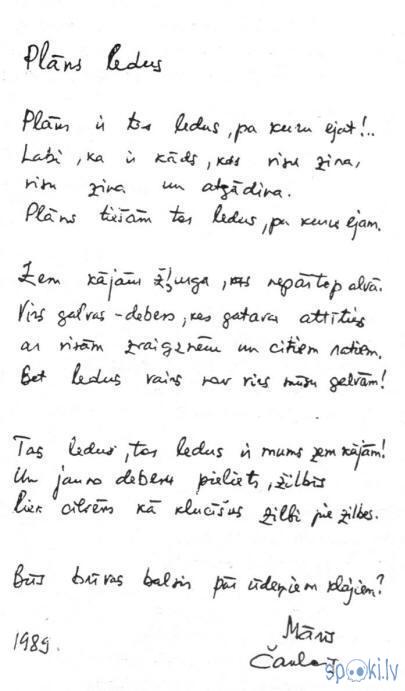 Plāns ledus
Plāns ir tas ledus, pa kuru ejat!..
Labi, ka ir kāds, kas visu zina,
visu zina un atgādina.
Plāns tiešām tas ledus, pa kuru ejam.
Zem kājām žļurga, kas nepārtop alvā.
Virs galvas – debess, kas gatava attīties
ar visām zvaigznēm un citiem
Bet ledus vairs nav virs mūsu galvām!
Tas ledus, tas ledus ir mums zem kājām!
Un jauno debesu pieliets, žilbis
Liek cilvēns kā klucīšus zilbi pie zilbes.
Būs brīvas balsis pār ūdeņiem klājiem?
Māris
Čaklais
1989.
spoki.lv